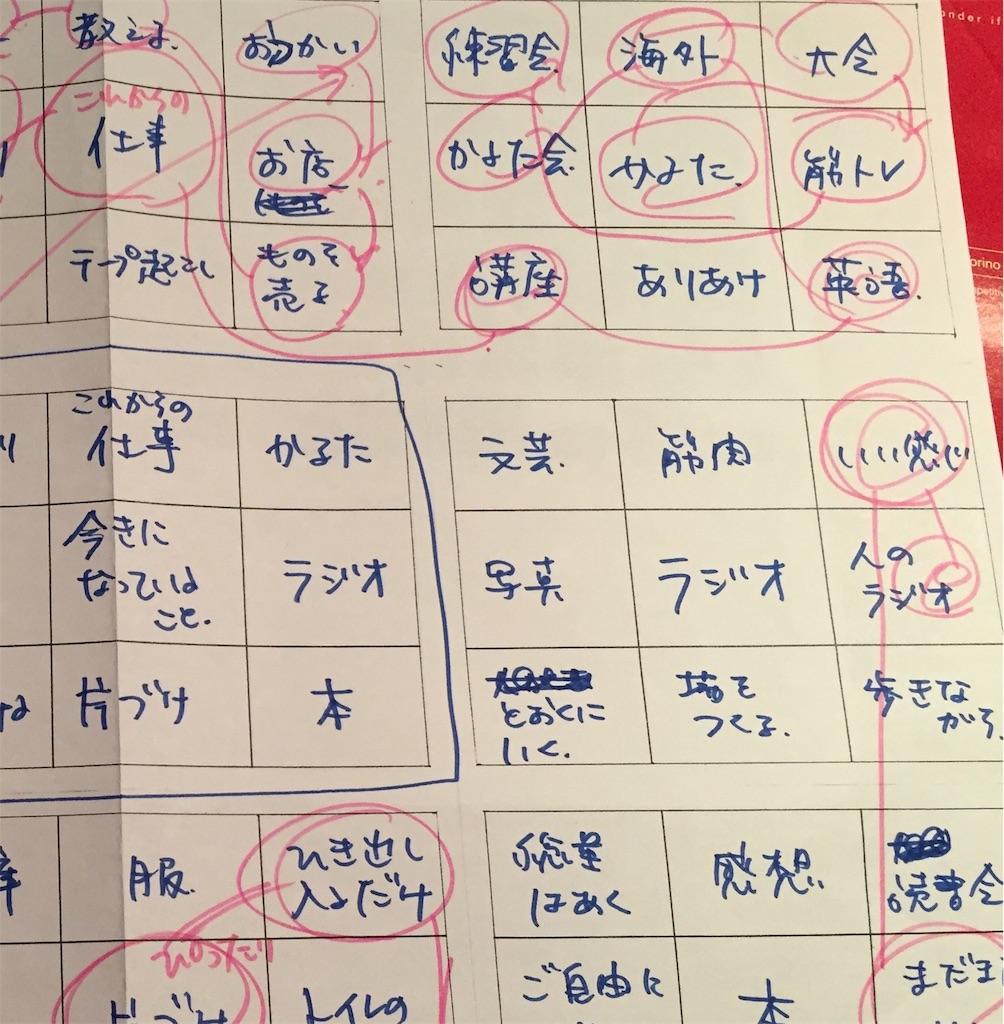 教える.
おつかい
練習会.
海外
大会
これからの
仕事
お店
かるた会.
かるた.
筋トレ
テープ起こし
ものを
売る
講座
ありあけ
英語.
これからの
仕事
かるた
文芸.
筋肉
いい感じ
今きに
なっている
こと.
ラジオ
写真
ラジオ
人の
ラジオ
片づけ
本
とおくに
いく.
場を
つくる.
歩きな
がら.
服.
ひき出し
入るだけ
総量
はあく
感想
読書会
片づけ
トイレの
ご自由に
本
まだま